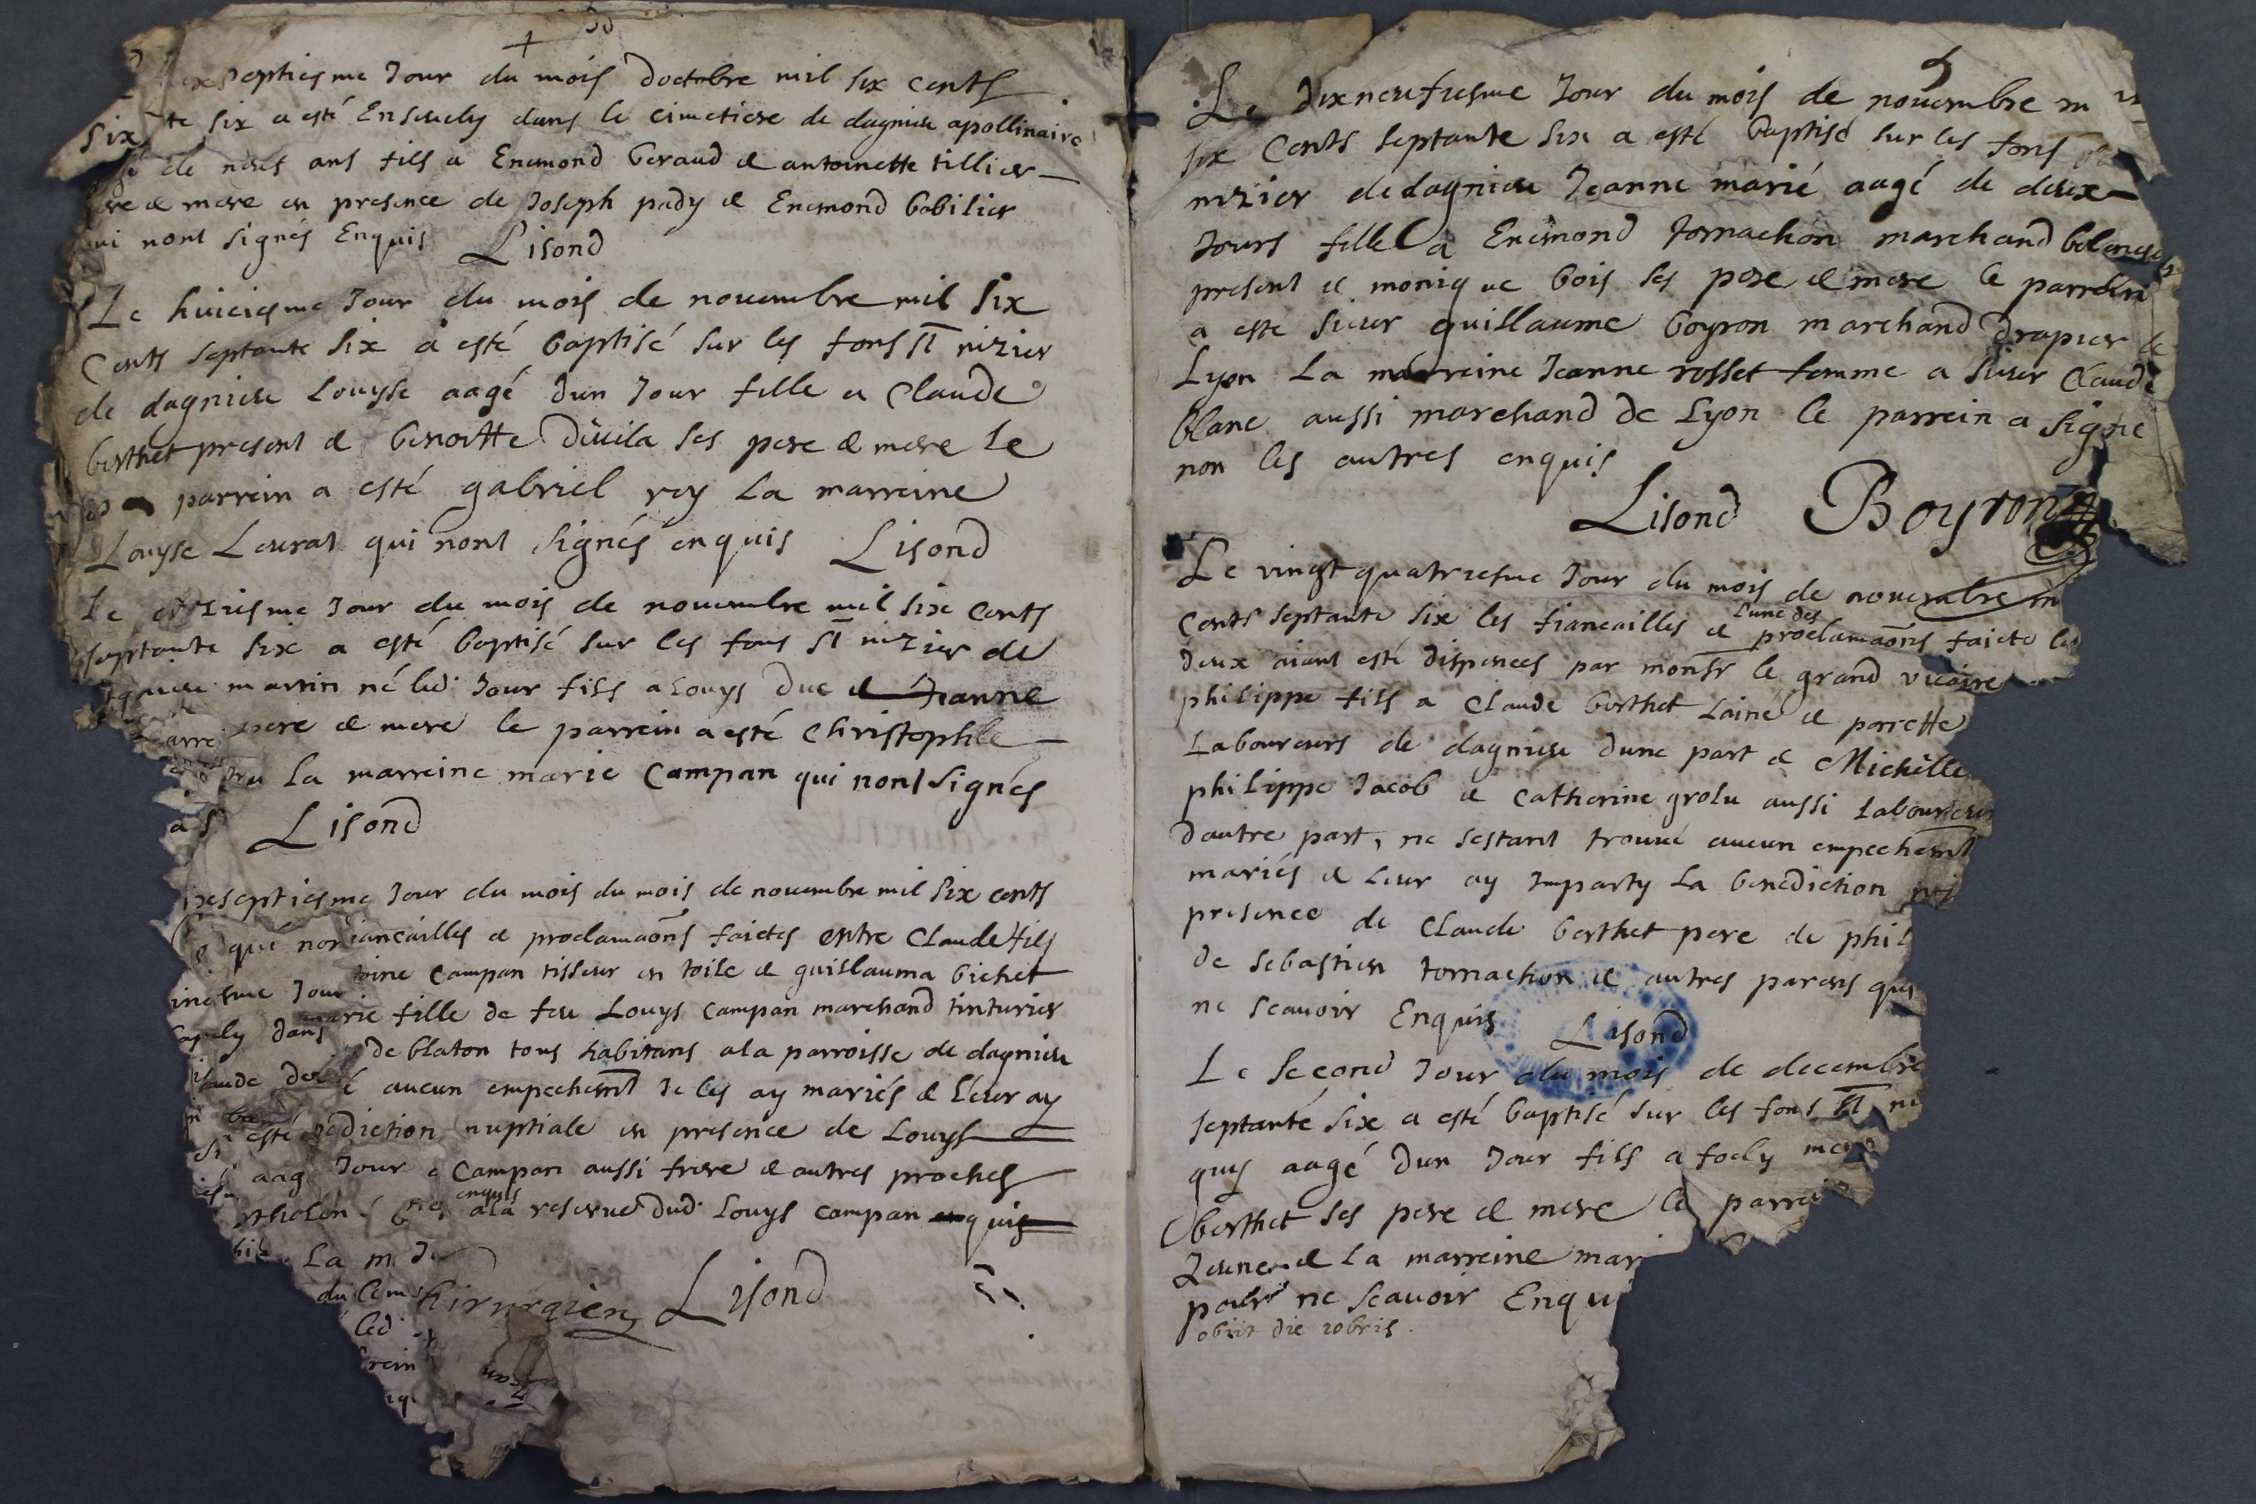 septiesme Jour du mois doctobre mil six cents
te six a esté Ensevely dans le cimetiere de dagnieu apollinaire
de neuf ans fils a Enemond beraud & antoinette tillier
& mere en presence de Joseph pady & Enemond babilier
nont signés Enquis Lisond
Le huiciesme Jour du mois de novembre mil six
cents septante six a esté baptisé sur les fons st nizier
de dagnieu Louyse aagé dun Jour fille a Claude
berthet present & benoitte Divila ses pere & mere Le
parrein a esté gabriel rey La marreine
Louyse Leurat qui nont signés enquis Lisond
Le onziesme Jour du mois de novembre mil six cents
septante six a esté baptisé sur les fons st nizier de
martin né led. Jour fils a Louys duc & Jeanne
pere & mere le parrein a esté Christophle
La marreine marie Campan qui nont signés
Lisond
septiesme Jour du mois du mois de novembre mil six cents
iancailles & proclamaons faictes entre Claude fils
toine Campan tisseur en toile & guillauma bichet
marie fille de feu Louys Campan marchand tinturier
de blaton tous habitans a la parroisse de dagnieu
é aucun empechemt Je les ay mariés & Leur ay
nediction nuptiale en presence de Louys
Campan aussi frere & autres proches
enquis
a la reserve dud. Louys Campan enquis
La m
hirurgien Lisond
5
Le dixneufiesme Jour du mois de novembre m
six Cents septante six a esté baptisé sur les fons
nizier de dagnieu Jeanne marié aagé de deux
Jours fille a Enemond tornachon marchand
present & monique bois ses pere & mere le parrein
a esté sieur guillaume boyron marchand drapier de
Lyon La marreine Jeanne rosset femme a sieur Claude
blanc aussi marchand de Lyon le parrein a signé
non les autres enquis
Lisond Boyron
Le vingt quatriesme Jour du mois de novembre m
cents septante six les fiancailles & lune des proclamaons faicte les
deux aiant esté dispencées par monsr le grand vicaire
philippe fils a Claude berthet Lainé & perrette
Laboureurs de dagnieu dune part & Michelle
philippe Jacob & Catherine grolu aussi Laboureur
dautre part, ne sestant trouvé aucun empechemt
mariés & Leur ay Imparty La benediction
presence de Claude berthet pere de phil
de sebastien tornachon & autres parens qui
ne scavoir Enquis Lisond
Le second Jour du mois de decembre
septante six a esté baptisé sur les fons st ni
aagé dun Jour fils a
berthet ses pere & mere le parrei
Jeune & La marreine mar
pour ne scavoir Enqui
obiit die 10bris.